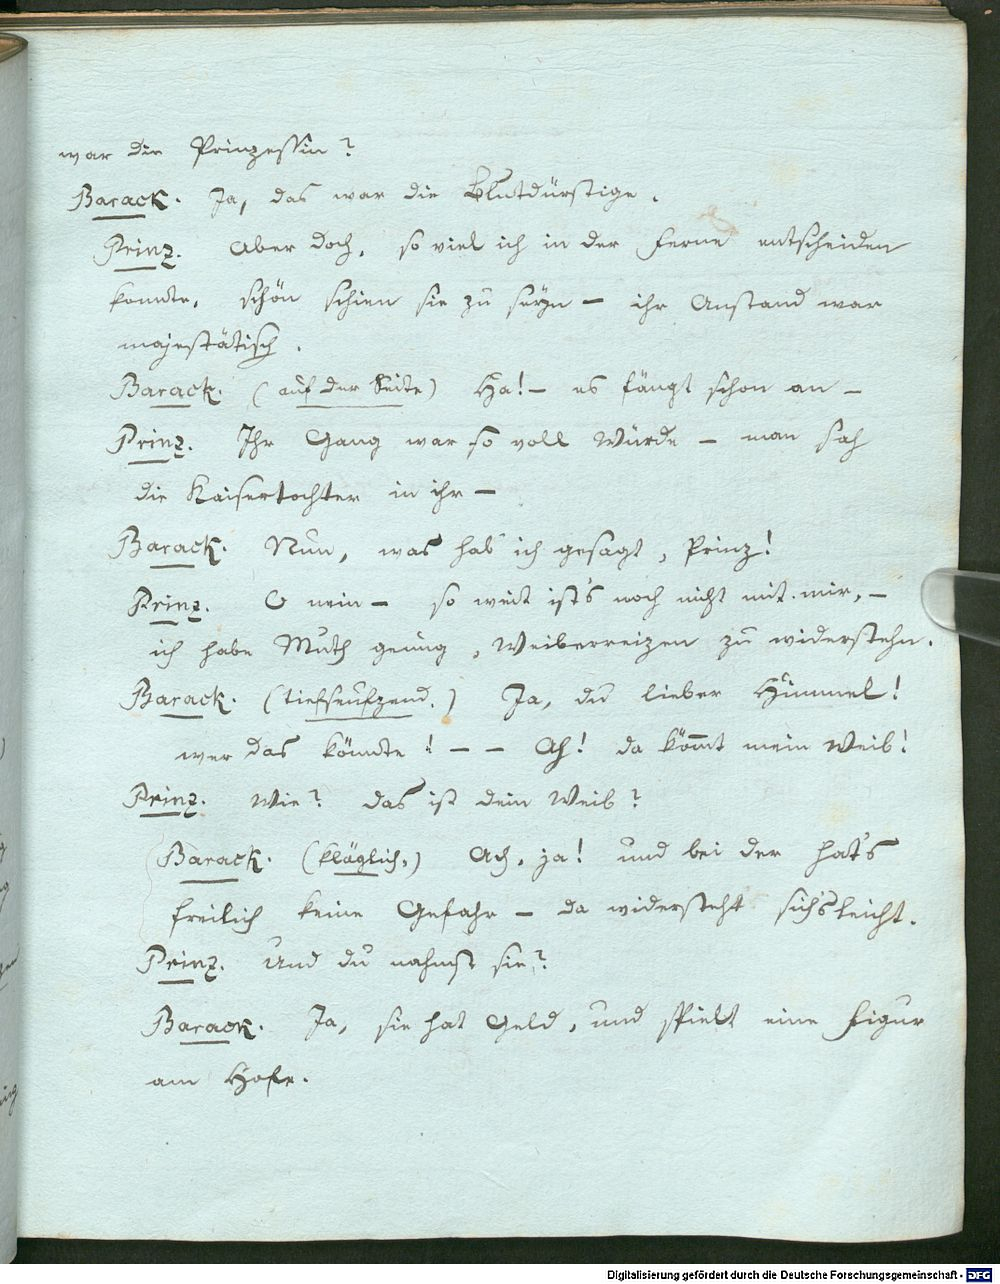 war die Prinzessin?
Barack. Ja, das war die Blutdürstige.
Prinz. Aber doch, so viel ich in der Ferne entscheiden
konnte, schön schien sie zu seÿn – ihr Anstand war
majestätisch.
Barack. (auf der Seite) Ha! – es fängt schon an –
Prinz. Ihr Gang war so voll Würde – man sah
die Kaisertochter in ihr –
Barack. Nun, was hab' ich gesagt, Prinz!
Prinz. O nein – so weit ist's noch nicht mit mir, –
ich habe Muth genug, Weiberreizen zu widerstehn.
Barack. (tiefseufzend.) Ja, du lieber Himmel!
wer das könnte! – – Ach! da kömmt mein Weib!
Prinz. Wie? das ist dein Weib?
Barack. (kläglich,) Ach, ja! und bei der hat's
freilich keine Gefahr – da widersteht sich's leicht.
Prinz. Und du nahmst sie?
Barack. Ja, sie hat Geld, und spielt eine Figur
am Hofe.
Digitalisierung gefördert durch die Deutsche Forschungsgemeinschaft - DFG